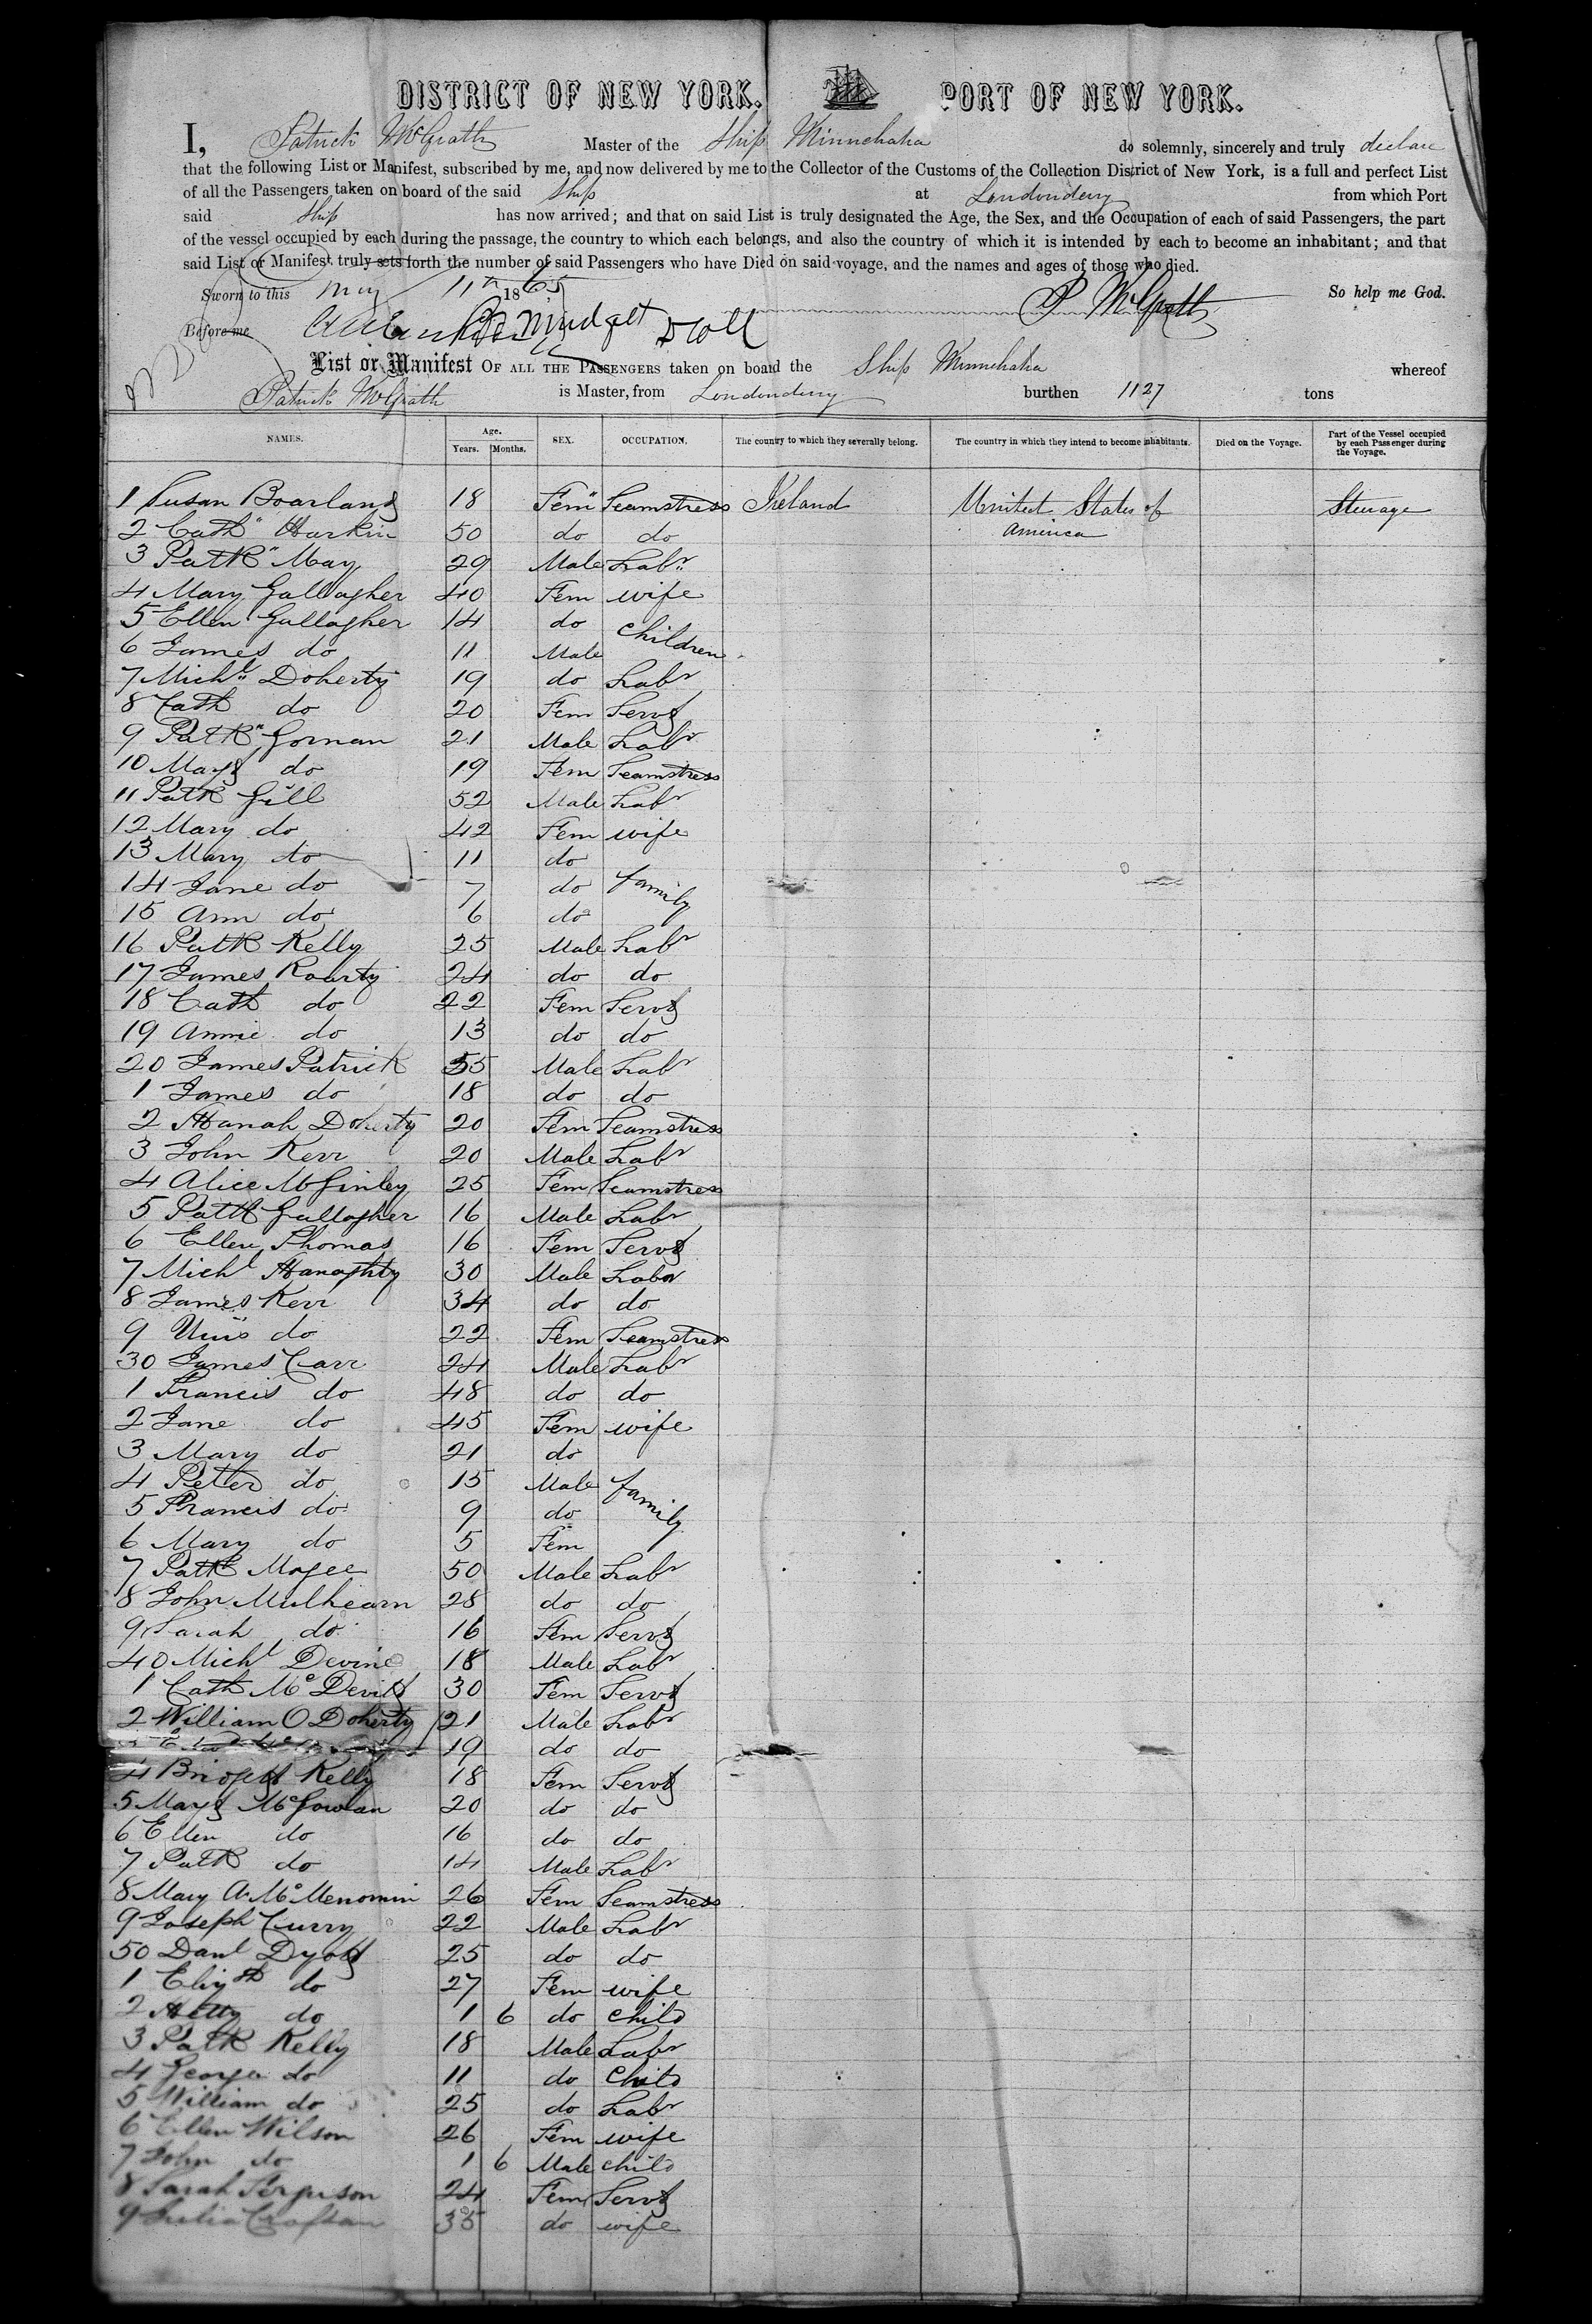 DISTRICT OF NEW YORK. PORT OF NEW YORK.
I, Patrick McGrath Master of the Ship Minnehaha do solemnly, sincerely and truly declare
that the following List or Manifest, subscribed by me, and now delivered by me to the Collector of the Customs of the Collection District of New York, is a full and perfect List
of all the Passengers taken on board of the said Ship at Londonderry from which Port
said Ship has now arrived; and that on said List is truly designated the Age, the Sex, and the Occupation of each of said Passengers, the part
of the vessel occupied by each during the passage, the country to which each belongs, and also the country of which it is intended by each to become an inhabitant; and that
said List or Manifest truly sets forth the number of said Passengers who have Died on said voyage, and the names and ages of those who died.
Sworn to this May 11th 1865 P McGrath So help me God.
Before me D Coll
List or Manifest OF ALL THE PASSENGERS taken on board the Ship Minnehaha whereof
Patrick McGrath is Master, from Londonderry burthen 1127 tons
NAMES. Age. Years. Months. SEX. OCCUPATION. The country to which they severally belong. The country in which they intend to become inhabitants. Died on the Voyage. Part of the Vessel occupied by each Passenger during the Voyage.
1 Susan Boarland 18 Fem Seamstress Ireland United States of America Steerage
2 Cath Harkin 50 do do
3 Patk May 29 Male Labr
4 Mary Gallagher 40 Fem wife
5 Ellen Gallagher 14 do children
6 James do 11 Male
7 Michl Doherty 19 do Labr
8 Cath do 20 Fem Servt
9 Patk Gorman 21 Male Labr
10 Mayt do 19 Fem Seamstress
11 Patk Gill 52 Male Labr
12 Mary do 42 Fem wife
13 Mary do 11 do
14 Jane do 7 do family
15 Ann do 6 do
16 Patk Kelly 25 Male Labr
17 James Roarty 24 do do
18 Cath do 22 Fem Servt
19 Annie do 13 do do
20 James Patrick 55 Male Labr
1 James do 18 do do
2 Hanah Doherty 20 Fem Seamstress
3 John Kerr 20 Male Labr
4 Alice McGinley 25 Fem Seamstress
5 Patk Gallagher 16 Male Labr
6 Ellen Thomas 16 Fem Servt
7 Michl Hanaghty 30 Male Labr
8 James Kerr 34 do do
9 do 22 Fem Seamstress
30 James Carr 24 Male Labr
1 Francis do 48 do do
2 Jane do 45 Fem wife
3 Mary do 21 do
4 Peter do 15 Male family
5 Francis do 9 do
6 Mary do 5 Fem
7 Patk Magee 50 Male Labr
8 John Mulhearn 28 do do
9 Sarah do 16 Fem Servt
40 Michl Devine 18 Male Labr
1 Cath McDevitt 30 Fem Servt
2 William O Doherty 21 Male Labr
19 do do
4 Bridget Kelly 18 Fem Servt
5 Mayt McGowan 20 do do
6 Ellen do 16 do do
7 Patk do 14 Male Labr
8 Mary A McMenomin 26 Fem Seamstress
9 Joseph Curry 22 Male Labr
50 Danl Dyott 25 do do
1 Elizth do 27 Fem wife
2 Hetty do 1 6 do child
3 Patk Kelly 18 Male Labr
4 George do 11 do Child
5 William do 25 do Labr
6 Ellen Wilson 26 Fem wife
7 John do 1 6 Male child
8 Sarah Ferguson 24 Fem Servt
9 Julia 35 do wife